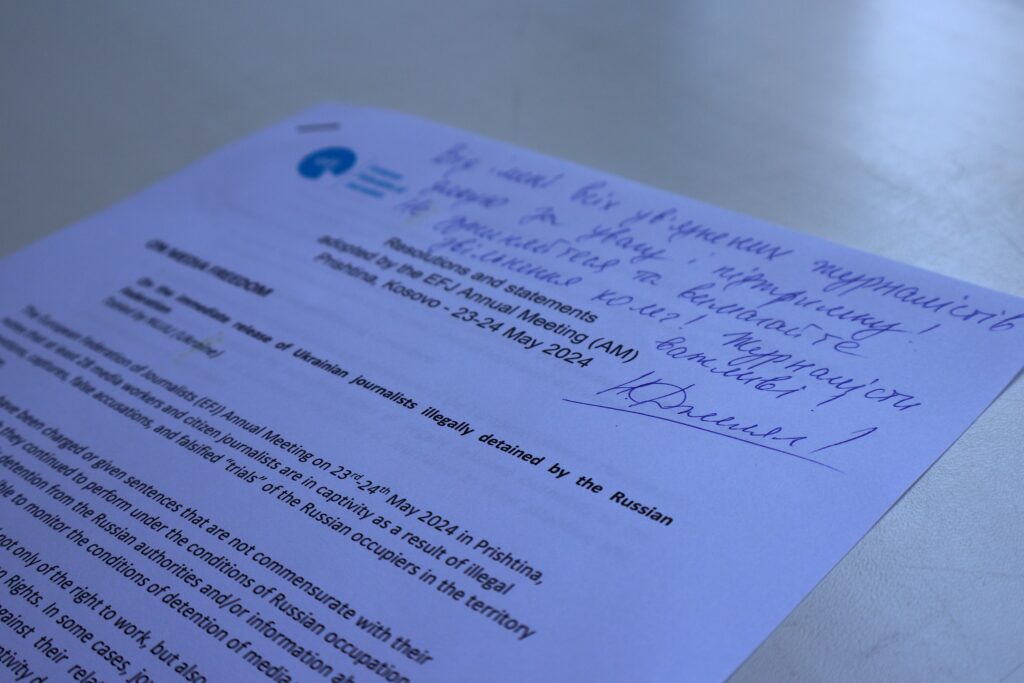 Від імені всіх ув'язнених журналістів
дякую за увагу і підтримку!
Не зупиняйтеся та вимагайте
звільнення колег! Журналісти
важливі!
Resolutions and statements
adopted by the EFJ Annual Meeting (AM)
Prishtina, Kosovo - 23-24 May 2024
ON MEDIA FREEDOM
On the immediate release of Ukrainian journalists illegally detained by the Russian
Federation
Tabled by NUJU (Ukraine)
The European Federation of Journalists (EFJ) Annual Meeting on 23rd-24th May 2024 in Prishtina,
notes that at least 28 media workers and citizen journalists are in captivity as a result of illegal
captures, false accusations, and falsified "trials" of the Russian occupiers in the territory
have been charged or given sentences that are not commensurate with their
they continued to perform under the conditions of Russian occupation
detention from the Russian authorities and/or information
to monitor the conditions of detention of media
not only of the right to work, but also
Rights. In some cases,
against their